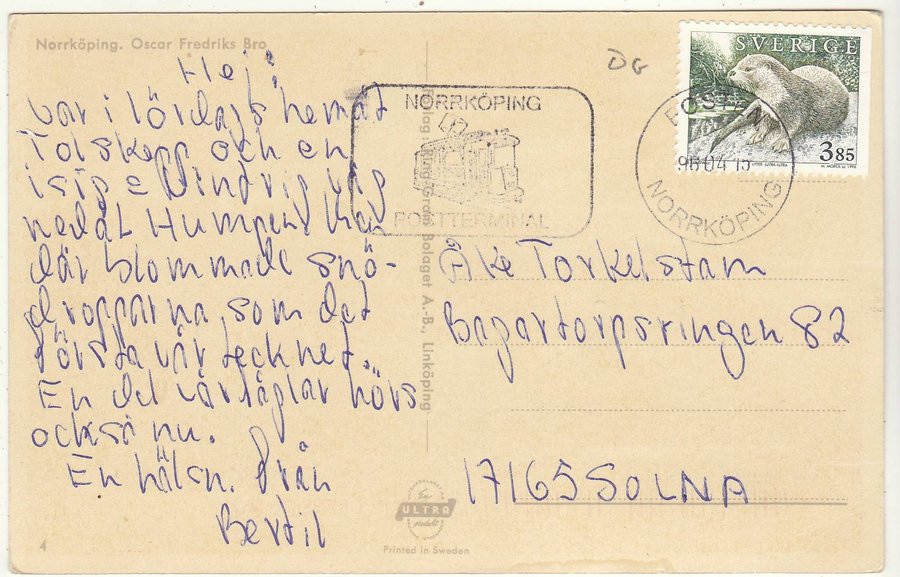 Norrköping. Oscar Fredriks Bro
Hej!
Var i lördags hemåt
Tolskepp och en
nedåt Humpen. Men
där blommade snö-
dropparna som det
första vårtecknet.
En del vårfåglar hörs
också nu.
En hälsn. från
Bertil
4
Bolaget A.-B., Linköping
ULTRA
Printed in Sweden
DG
NORRKÖPING
POSTTERMINAL
POSTEN
96 04 15
NORRKÖPING
SVERIGE
3.85
Åke Torkelstam
Bagartorpsringen 82
17165 SOLNA